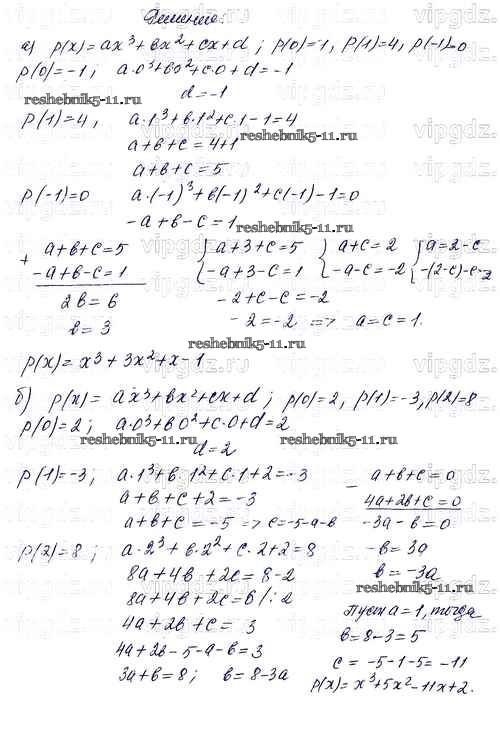 Решение:
а) p(x)=ax³+bx²+cx+d; p(0)=-1, p(1)=4, p(-1)=0
p(0)=-1; a·0³+b0²+c·0+d=-1
d=-1
reshebnik5-11.ru
reshebnik5-11.ru
p(1)=4, a·1³+b·1²+c·1-1=4
a+b+c=4+1
a+b+c=5
p(-1)=0 a·(-1)³+b(-1)²+c(-1)-1=0
-a+b-c=1
reshebnik5-11.ru
+ a+b+c=5
-a+b-c=1
2b=6
b=3
{ a+3+c=5
-a+3-c=1
{ a+c=2
-a-c=-2
{ a=2-c
-(2-c)-c=-2
-2+c-c=-2
-2=-2 => a=c=1.
reshebnik5-11.ru
p(x)=x³+3x²+x-1
б) p(x)=ax³+bx²+cx+d; p(0)=2, p(1)=-3, p(2)=8
p(0)=2; a·0³+b0²+c·0+d=2
d=2
reshebnik5-11.ru
reshebnik5-11.ru
p(1)=-3, a·1³+b·1²+c·1+2=-3
a+b+c+2=-3
a+b+c=-5 => c=-5-a-b
p(2)=8; a·2³+b·2²+c·2+2=8
8a+4b+2c=8-2
8a+4b+2c=6/:2
4a+2b+c=3
4a+2b-5-a-b=3
3a+b=8; b=8-3a
- a+b+c=0
4a+2b+c=0
-3a-b=0
-b=3a
b=-3a
reshebnik5-11.ru
Пусть a=1, тогда
b=8-3=5
c=-5-1-5=-11
p(x)=x³+5x²-11x+2.